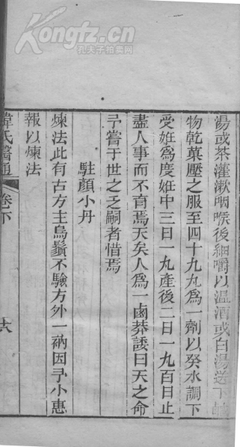 Kongfz.com
孔夫子旧书网
湯或茶灌漱咽喉後細嚼以溫酒或白湯送下
物乾菓壓之服至四十九丸爲一劑以癸水調下
受姙爲度姙中三日一丸產後二日一丸百日止
盡人事而不育焉天矣人爲一鹵莽諉曰天之命
予嘗于世之乏嗣者惜焉
駐顏小丹
煉法此有古方主烏鬚不驗方外一衲因予小惠
報以煉法
韓氏醫通
卷下
六